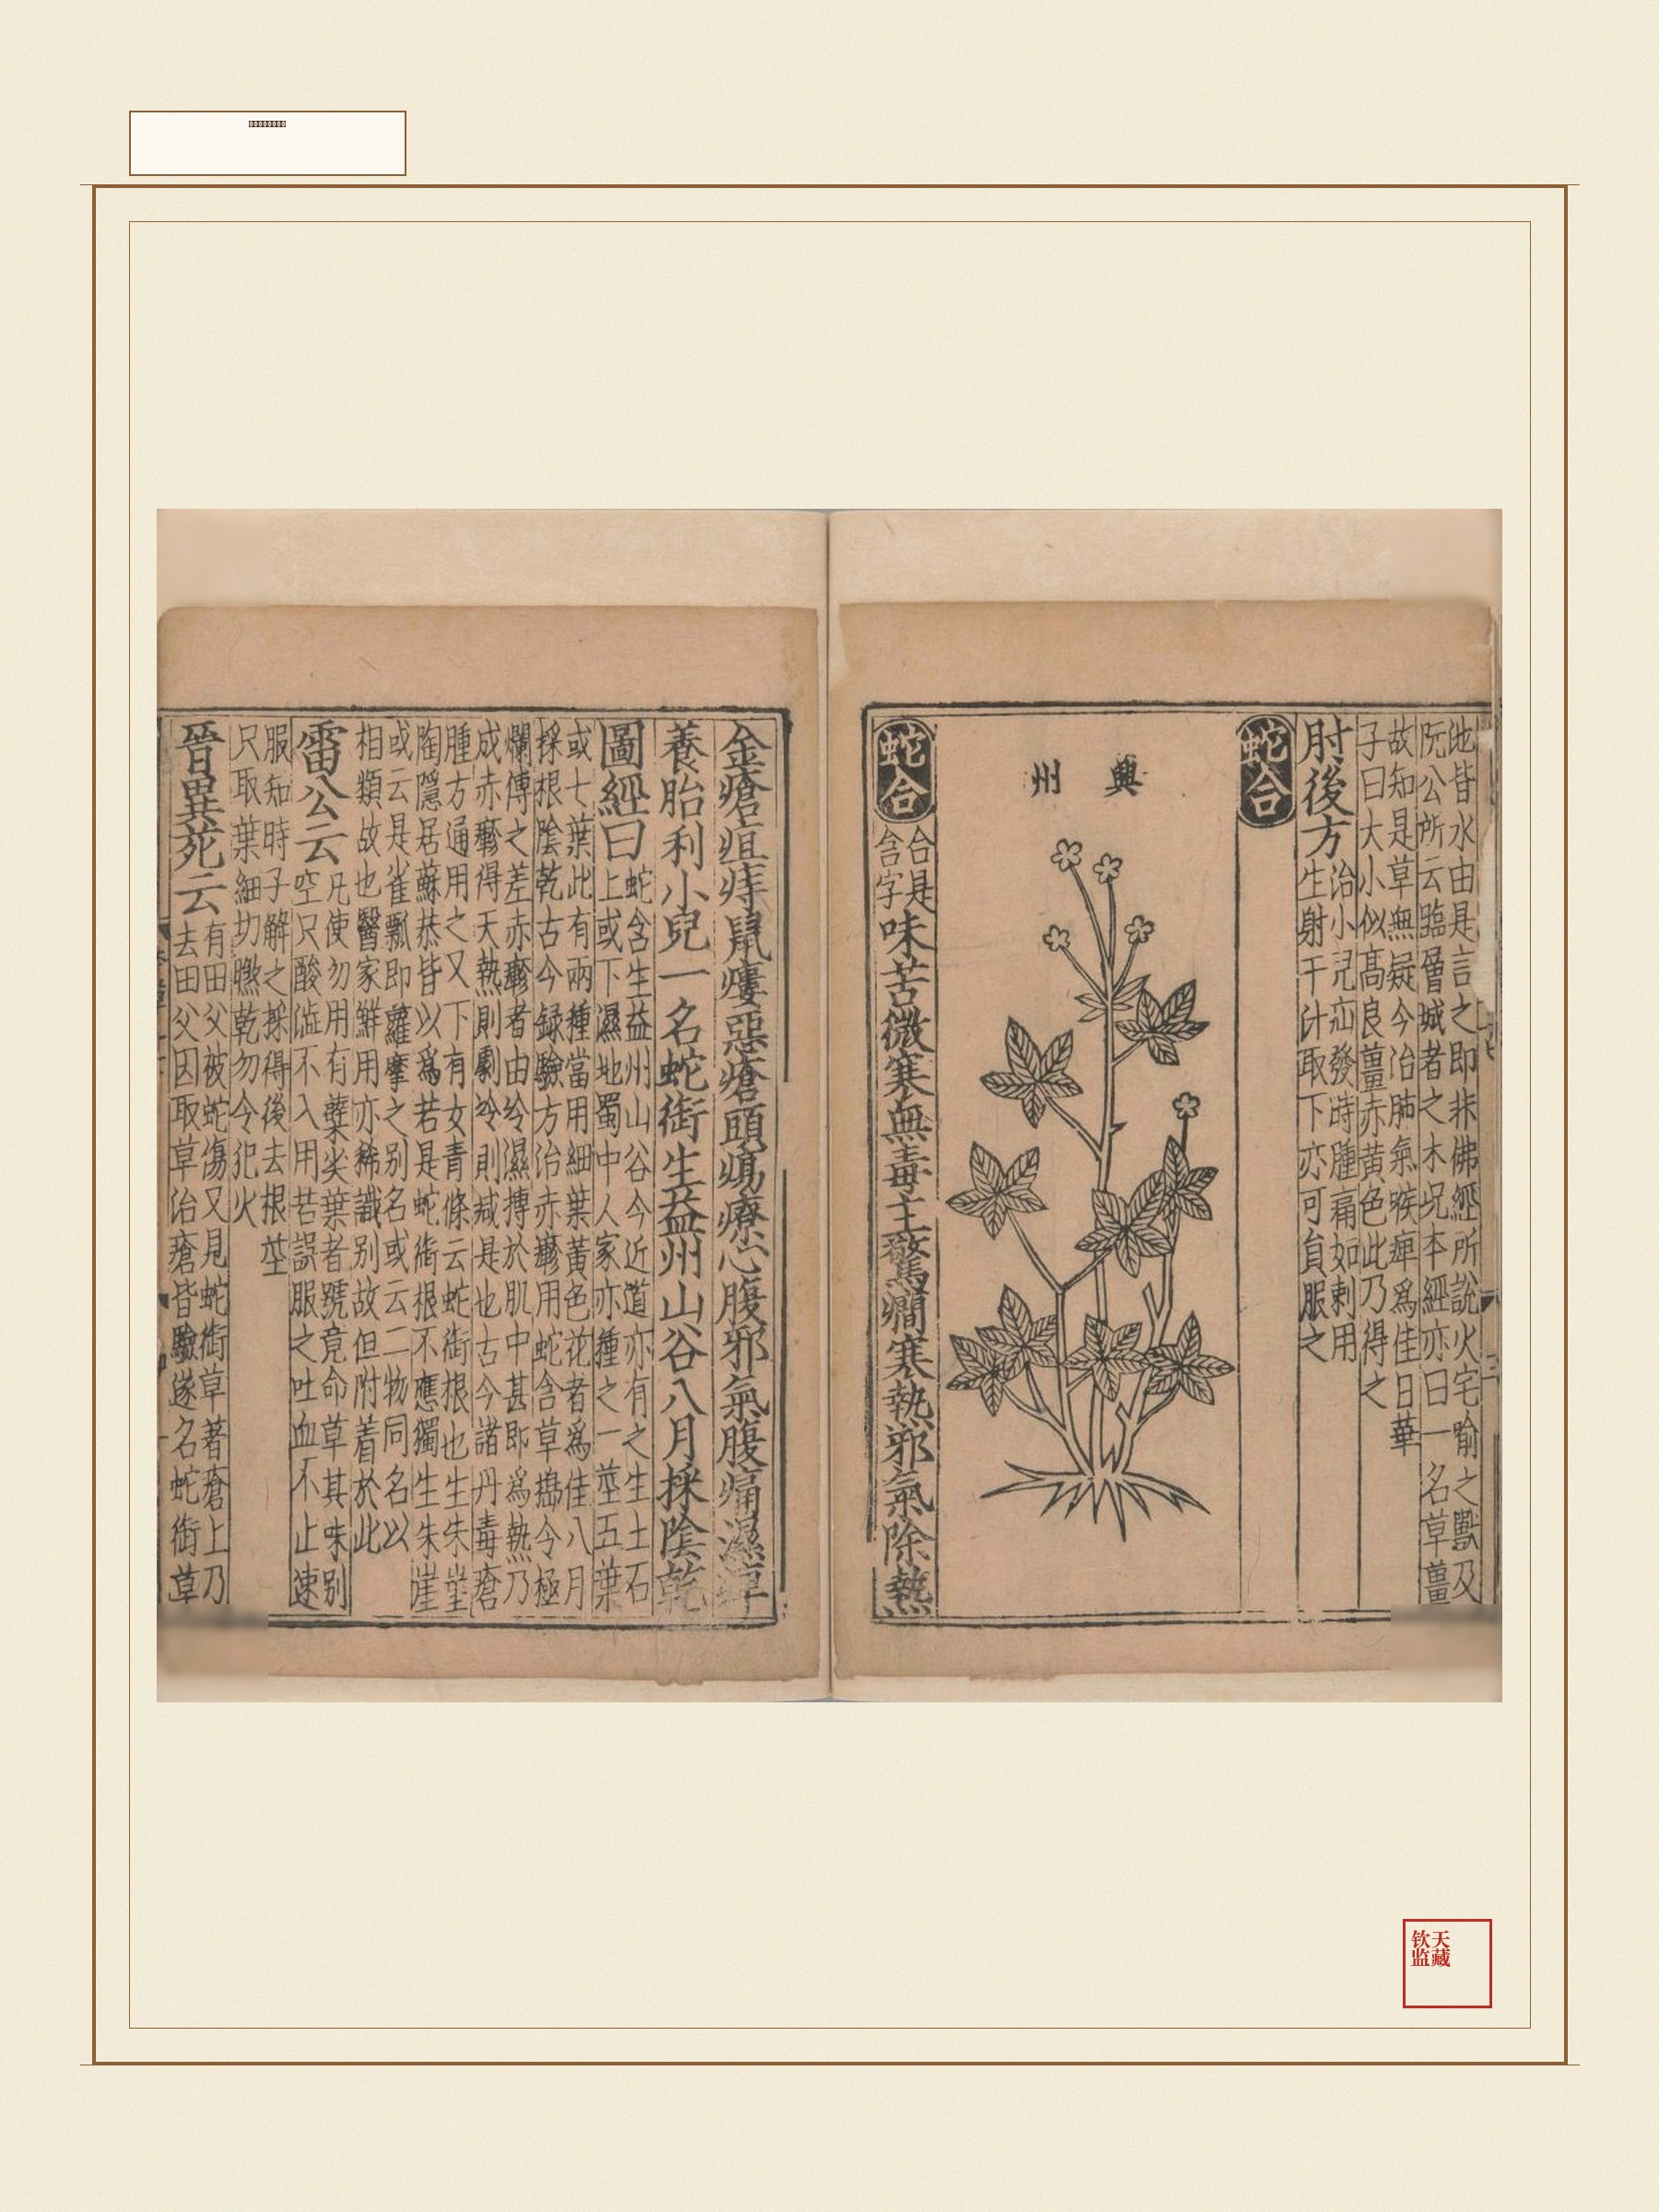 地皆水由是言之即非佛經所說火宅喻之獸及
阮公所云臨層城者之木况本經亦曰一名草薑
故知是草無疑今治肺氣喉痺爲佳日華
子曰大小似髙良薑赤黃色此乃得之
肘後方
治小兒疝發時腫痛如刺用
生射干汁取下亦可負服之
蛇合
興州
蛇合
合是
含字
味苦微寒無毒主驚癇寒熱邪氣除熱
金瘡疽痔鼠瘻惡瘡頭瘍療心腹邪氣腹痛濕痺
養胎利小兒一名蛇銜生益州山谷八月採陰乾
圖經曰
蛇含生益州山谷今近道亦有之生土石
上或下濕地蜀中人家亦種之一莖五葉
或七葉此有兩種當用細葉黃色花者爲佳八月
採根陰乾古今録驗方治赤癥用蛇含草搗令極
爛傅之差赤癥者由冷濕搏於肌中甚即爲熱乃
成赤癥得天熱則劇冷則减是也古今諸丹毒瘡
腫方通用之又下有女青條云蛇銜根也生朱崖
陶隱居蘇恭皆以爲若是蛇銜根不應獨生朱崖
或云是雀瓢即蘿摩之别名或云二物同名以
相類故也醫家鮮用亦稀識别故但附着於此
雷公云
凡使勿用有蘖尖葉者號竟命草其味别
空只酸澁不入用若誤服之吐血不止速
服知時子解之採得後去根莖
只取葉細切㬠乾勿令犯火
晉異苑云
有田父被蛇傷又見蛇銜草著瘡上乃
去田父因取草治瘡皆驗遂名蛇銜草
钦天
监藏